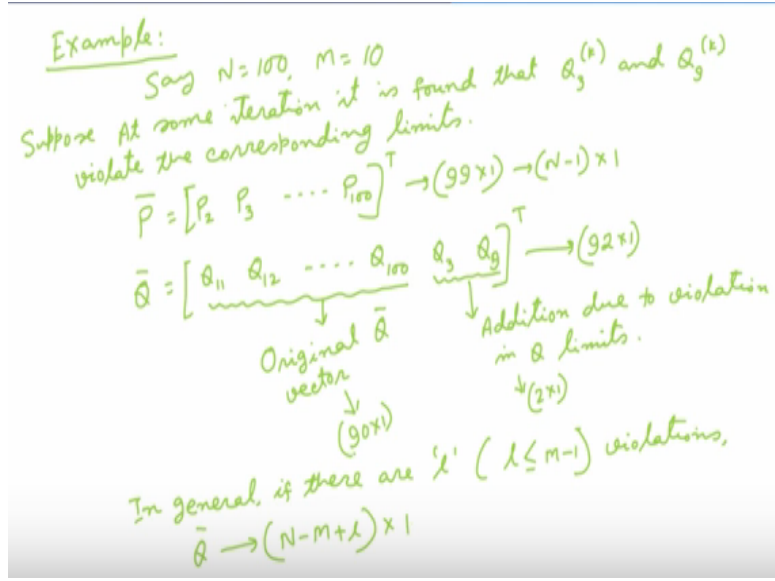 Example:
Say N=100, M=10
Suppose At some iteration it is found that Q₃⁽ᵏ⁾ and Q₉⁽ᵏ⁾
violate the corresponding limits.
P̅ = [P₂ P₃ .... P₁₀₀]ᵀ →(99×1) →(N-1)×1
Q̅ = [Q₁₁ Q₁₂ .... Q₁₀₀ Q₃ Q₉]ᵀ →(92×1)
↓ ↓
Original Q̅
vector
↓
(90×1)
Addition due to violation
in Q limits.
↓(2×1)
In general, if there are 'l' (l≤M-1) violations,
Q̅ →(N-M+l)×1